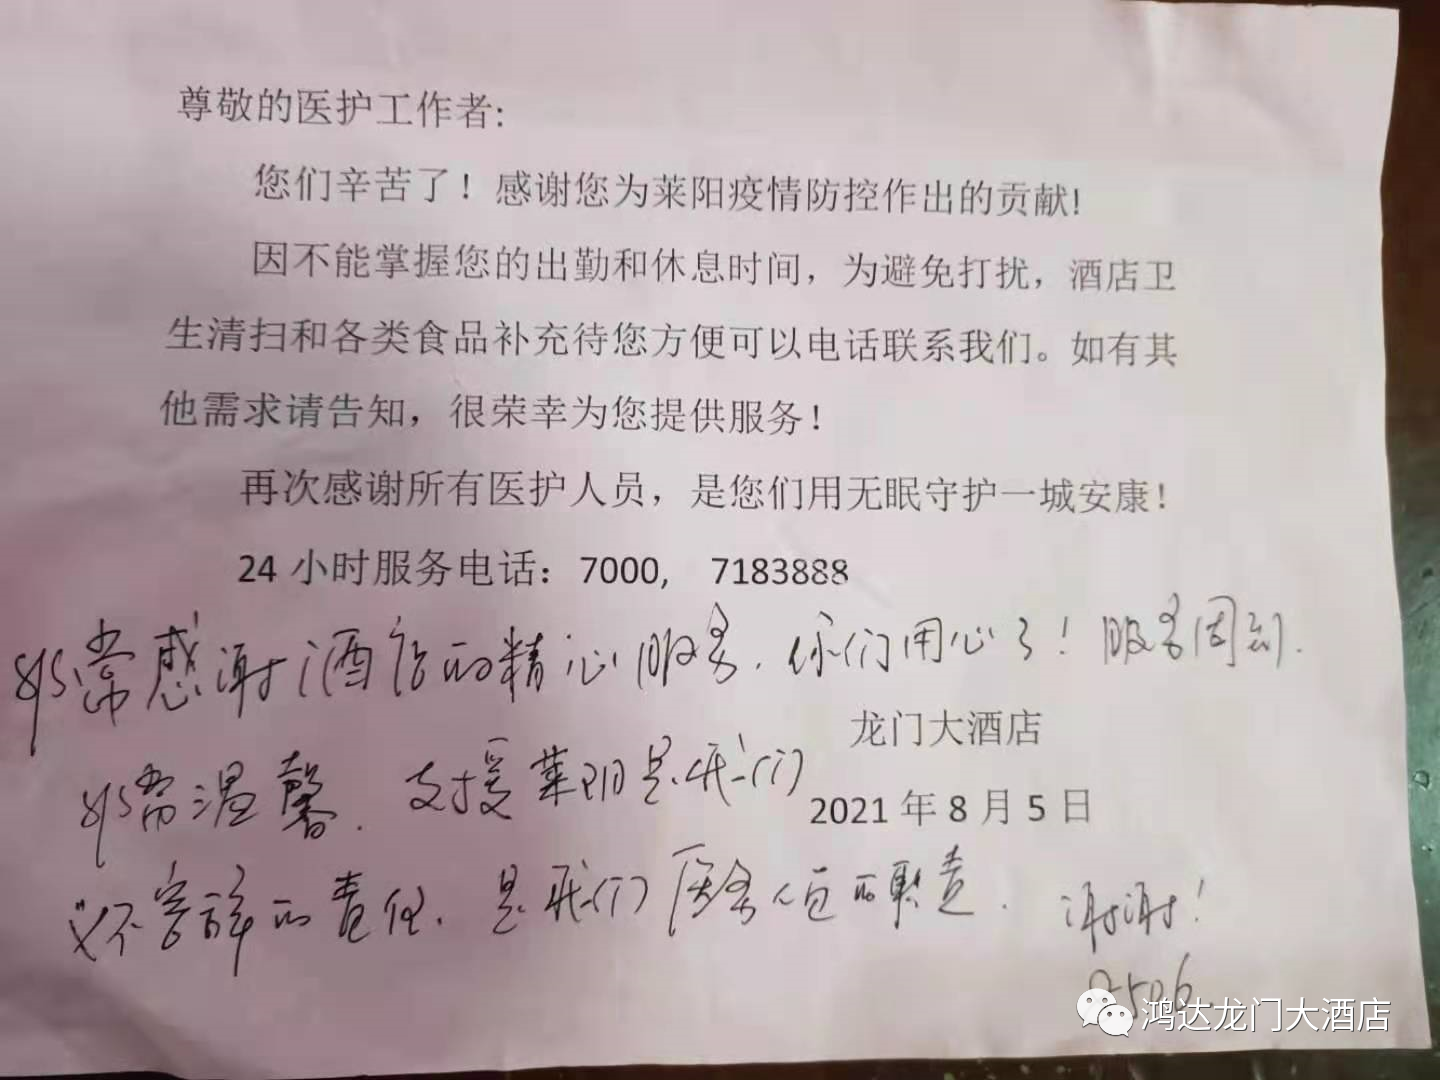 尊敬的医护工作者:
您们辛苦了！感谢您为莱阳疫情防控作出的贡献!
因不能掌握您的出勤和休息时间，为避免打扰，酒店卫
生清扫和各类食品补充待您方便可以电话联系我们。如有其
他需求请告知，很荣幸为您提供服务！
再次感谢所有医护人员，是您们用无眠守护一城安康！
24 小时服务电话：7000, 7183888
非常感谢酒店的精心服务.你们用心了！服务周到.
龙门大酒店
非常温馨.支援莱阳是我们
2021 年 8 月 5 日
义不容辞的责任.是我们医务人员的职责.谢谢！
鸿达龙门大酒店